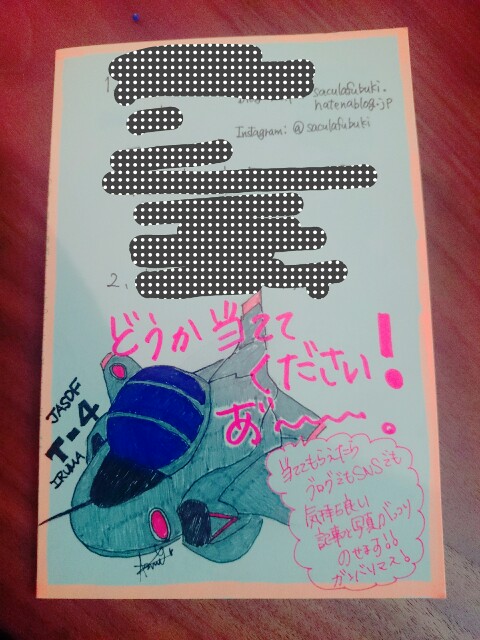 1.
saculafubuki.
hatenablog.jp
Instagram: @saculafubuki
2.
どうか当てて
ください!
あ゛〜〜〜!
JASDF
T-4
IRUMA
当ててもらえたら
ブログでもSNSでも
気持ち良い
記事と写真がっつり
のせます!!
ガンバリマス!